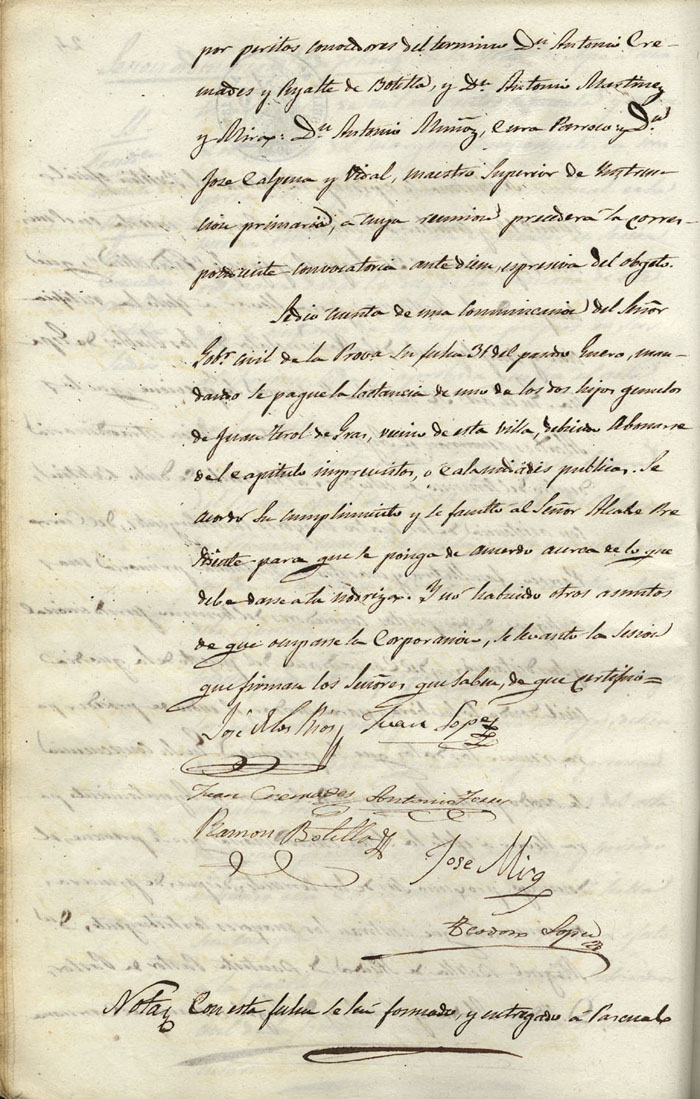 por peritos conocedores del termino Dn Antonio Cre-
mades y Ryalte de Botella, y Dn Antonio Martinez
y Mira: Dn Antonio Muñoz, Cura Parroco: y Dn
Jose Calpena y Vidal, maestro Superior de Ynstruc-
cion primaria, a cuya reunion precedera la corres-
pondiente convocatoria ante diem, espresiva del objeto.
Se dio cuenta de una comunicacion del Señor
Gobr civil de la Prova su fecha 31 del pasado Enero, man-
dando se pague la lactancia de uno de los dos hijos gemelos
de Juan Terol de Gras, vecino de esta villa, debiendo abonarse
del capitulo imprevistos, o calamidades publicas. Se
acordo su cumplimiento y se faculto al Señor Alcalde Pre
sidente para que se ponga de acuerdo acerca de lo que
debe darse a la nodriza. Y no habiendo otros asuntos
de que ocuparse la Corporacion, se levanto la sesion
que firman los Señores que saben, de que certifico=
José de los Rios Juan Lopez
Juan Cremades Antonio
Ramon Botella
Jose Mira
Teodoro Lopez
Nota Con esta fecha se ha formado, y entregado a Pascual